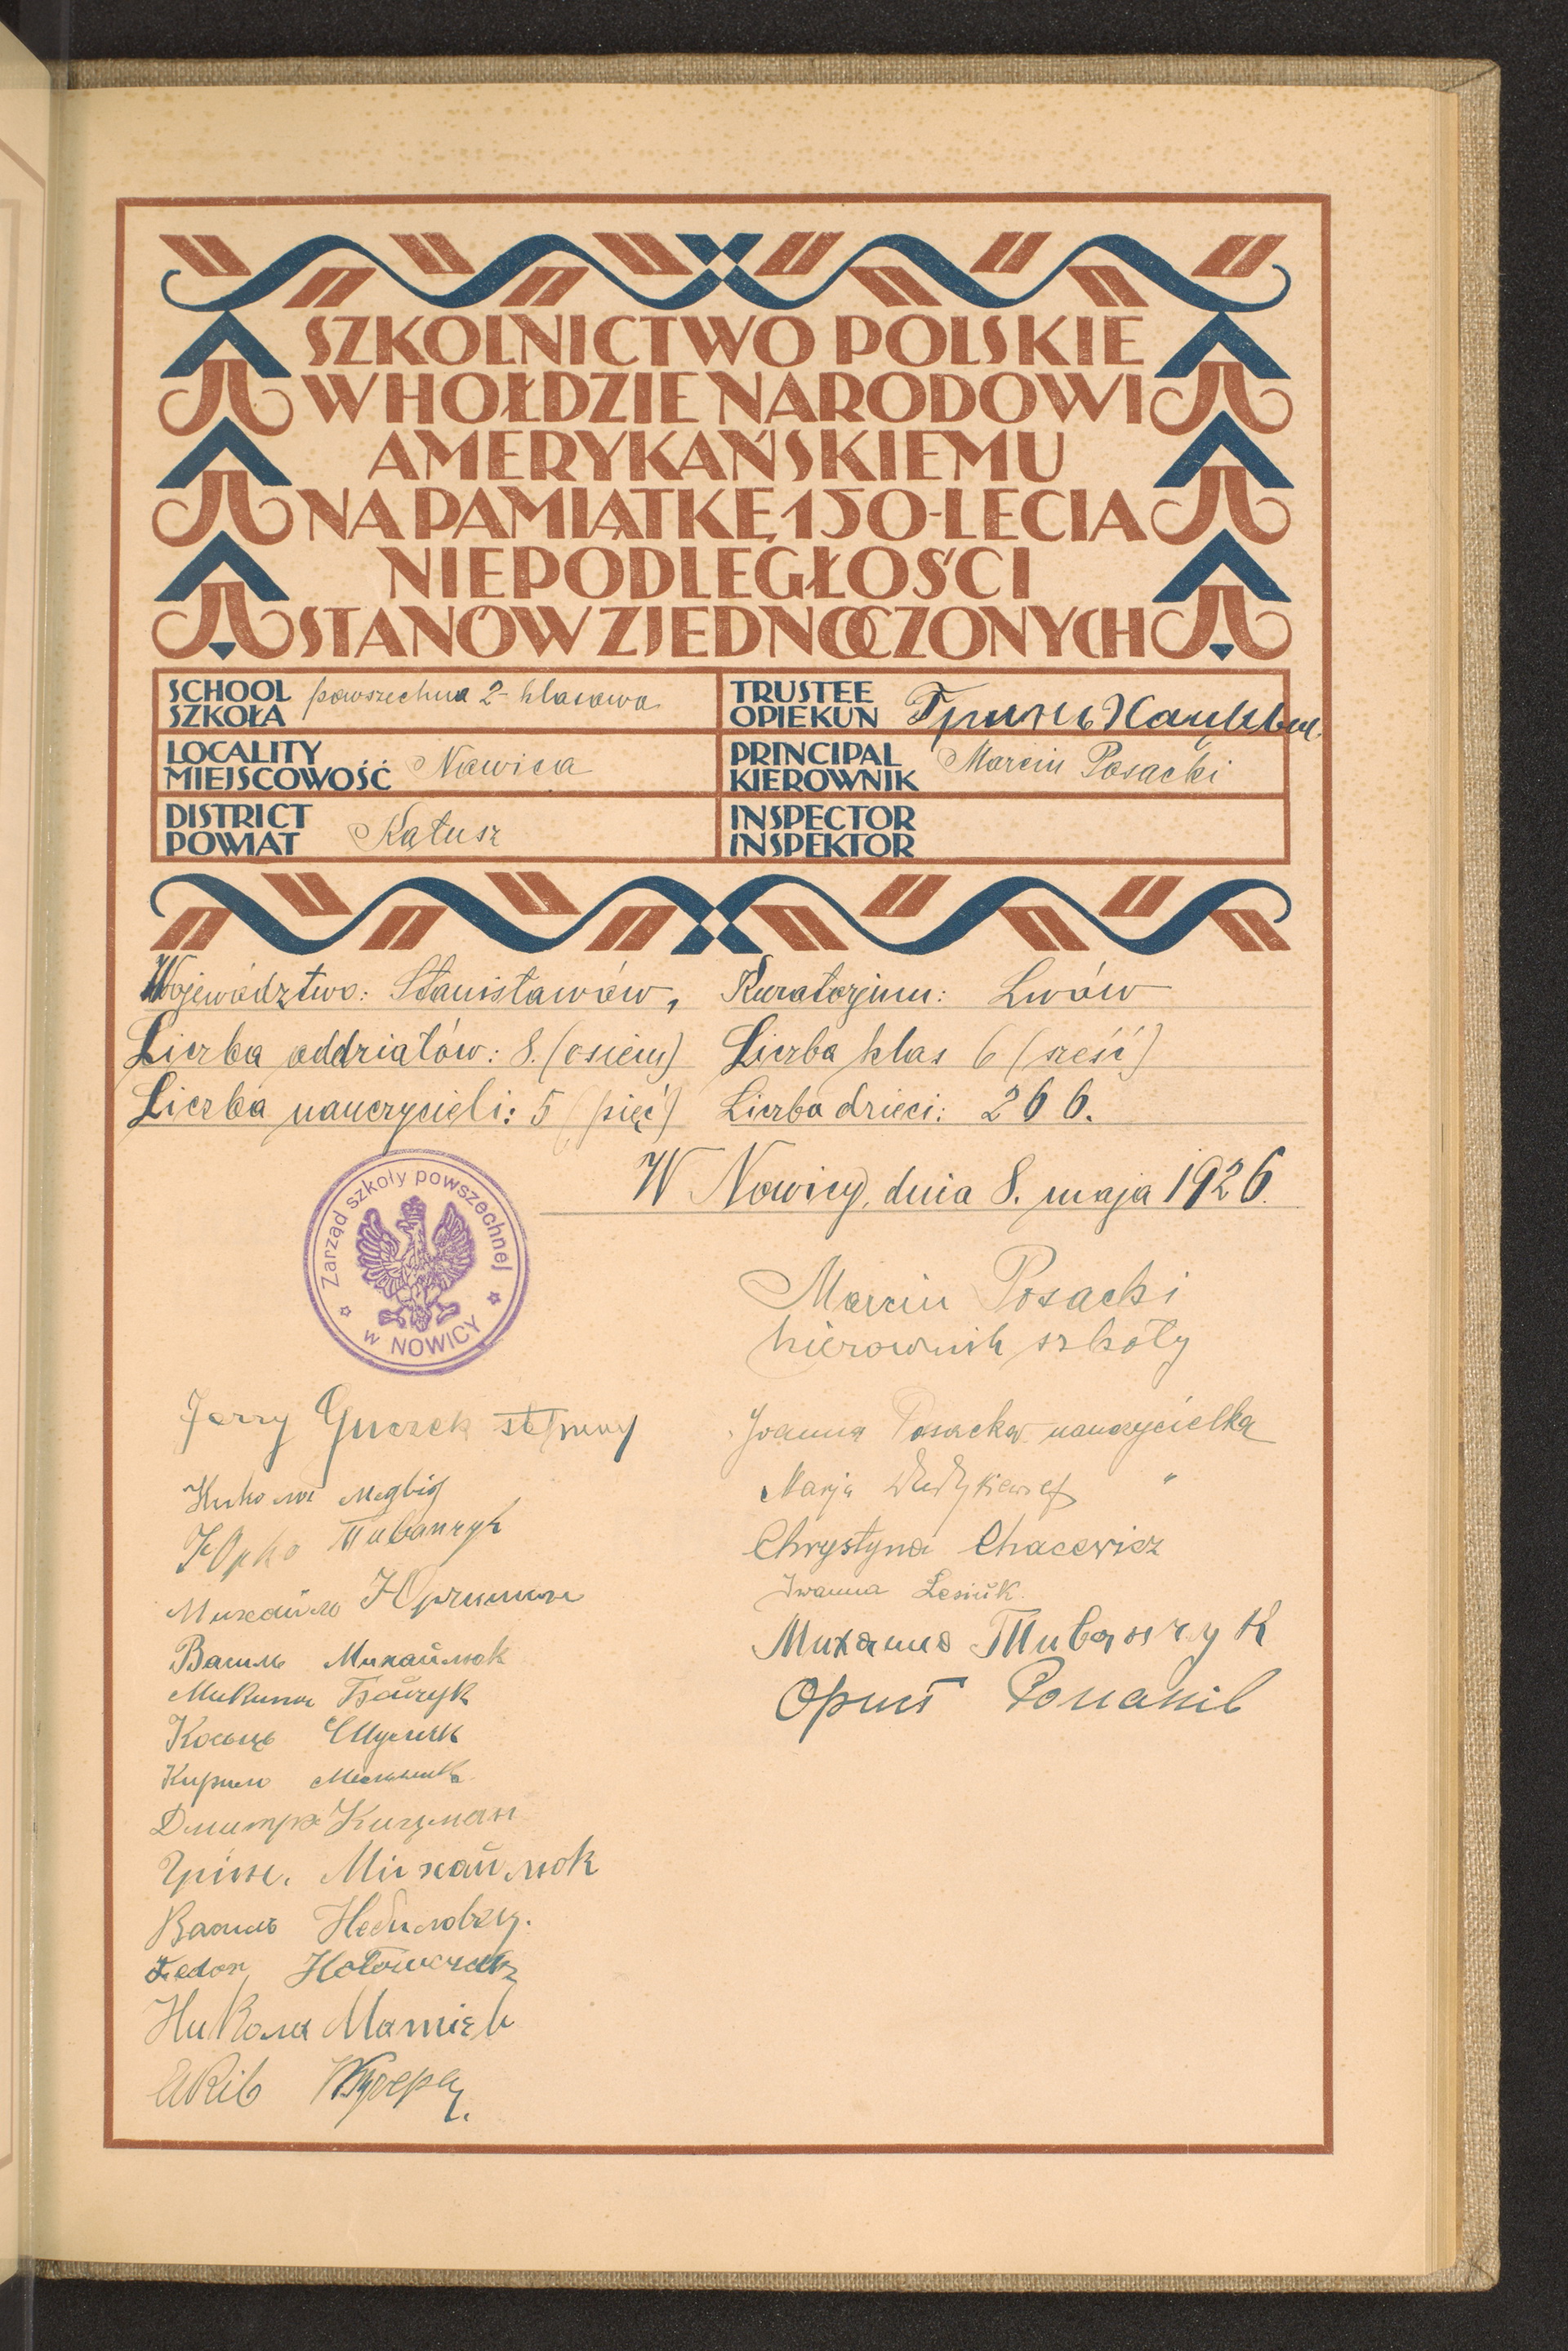 SZKOLNICTWO POLSKIE
W HOŁDZIE NARODOWI
AMERYKAŃSKIEMU
NA PAMIĄTKĘ 150-LECIA
NIEPODLEGŁOŚCI
STANÓW ZJEDNOCZONYCH
SCHOOL
SZKOŁA powszechna 2-klasowa
TRUSTEE
OPIEKUN Гринь
LOCALITY
MIEJSCOWOŚĆ Nowica
PRINCIPAL
KIEROWNIK Marcin Posacki
DISTRICT
POWIAT Kałusz
INSPECTOR
INSPEKTOR
Województwo: Stanisławów, Kuratorjum: Lwów
Liczba oddziałów: 8. (osiem) Liczba klas 6 (sześć)
Liczba nauczycieli: 5 (pięć) Liczba dzieci: 266.
W Nowicy, dnia 8. maja 1926.
Zarząd szkoły powszechnej
w NOWICY
Marcin Posacki
kierownik szkoły
Jerzy
Joanna Posacka nauczycielka
Marja "
Chrystyna Chacewicz
Iwanna Lesiuk
Михаило
Орист Романів
Юрко Шиванчук
Михайло
Василь Михайлюк
Микита Бойчук
Кирило
Дмитро Кицман
Грінь. Михайлюк
Василь
Fedor
Никола Матіїв
Яків